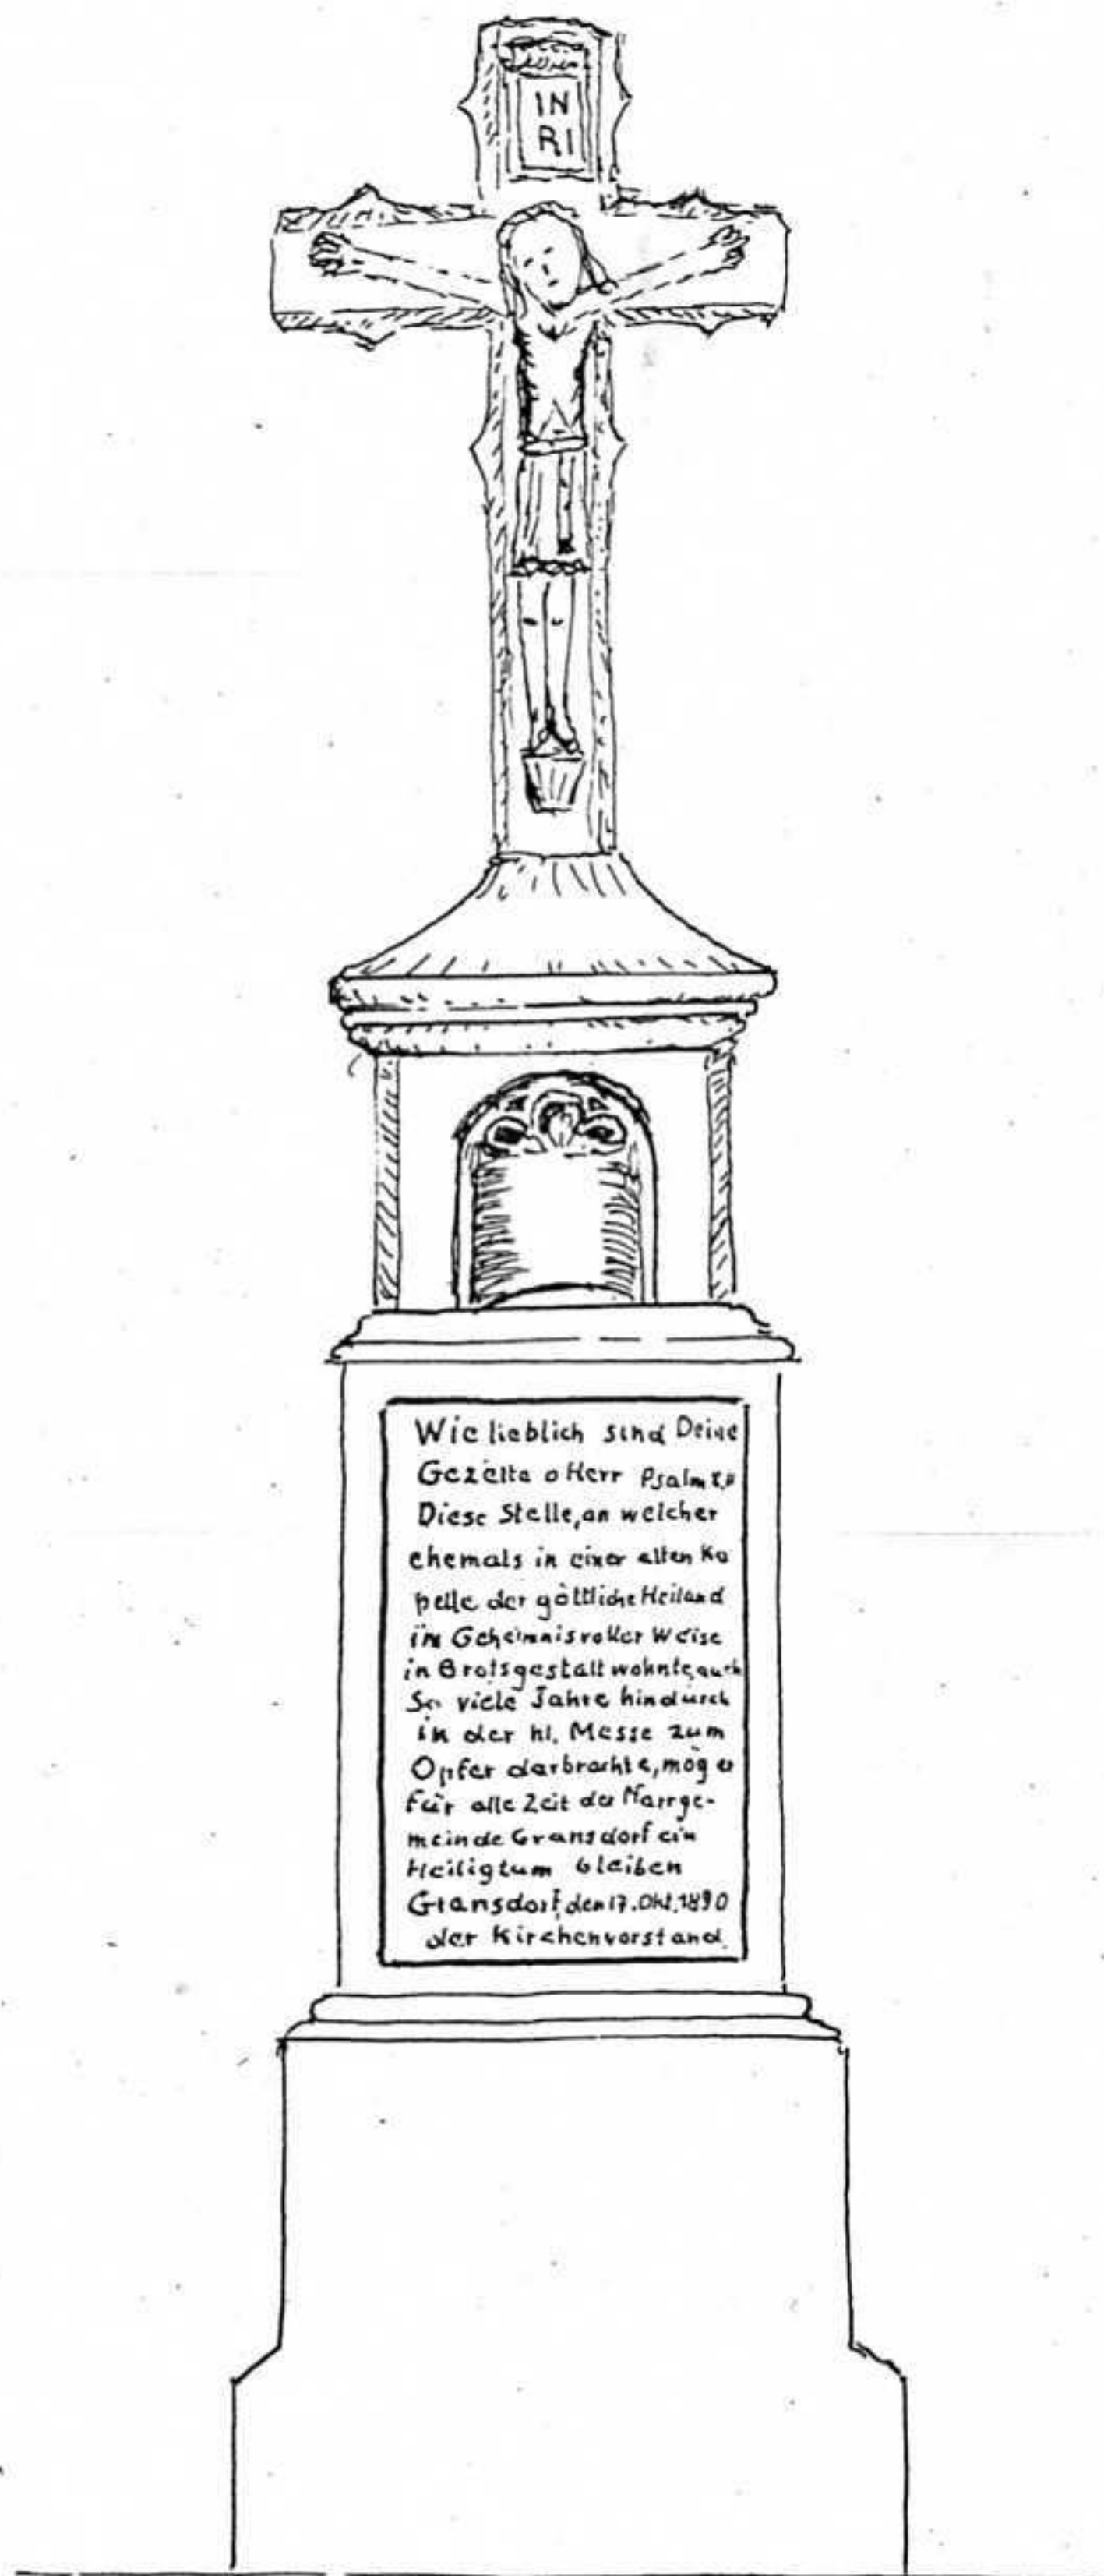 IN
RI
Wie lieblich sind Deine
Gezelte o Herr Psalm
Diese Stelle, an welcher
ehemals in einer alten Ka
pelle der göttliche Heiland
im Geheimnisvoller Weise
in Brotsgestalt wohnte, auch
So viele Jahre hindurch
in der hl. Messe zum
Opfer darbrachte, mög er
für alle Zeit der Pfarrge-
meinde Gransdorf ein
Heiligtum bleiben
Gransdorf, den 17. Okt. 1890
der Kirchenvorstand.